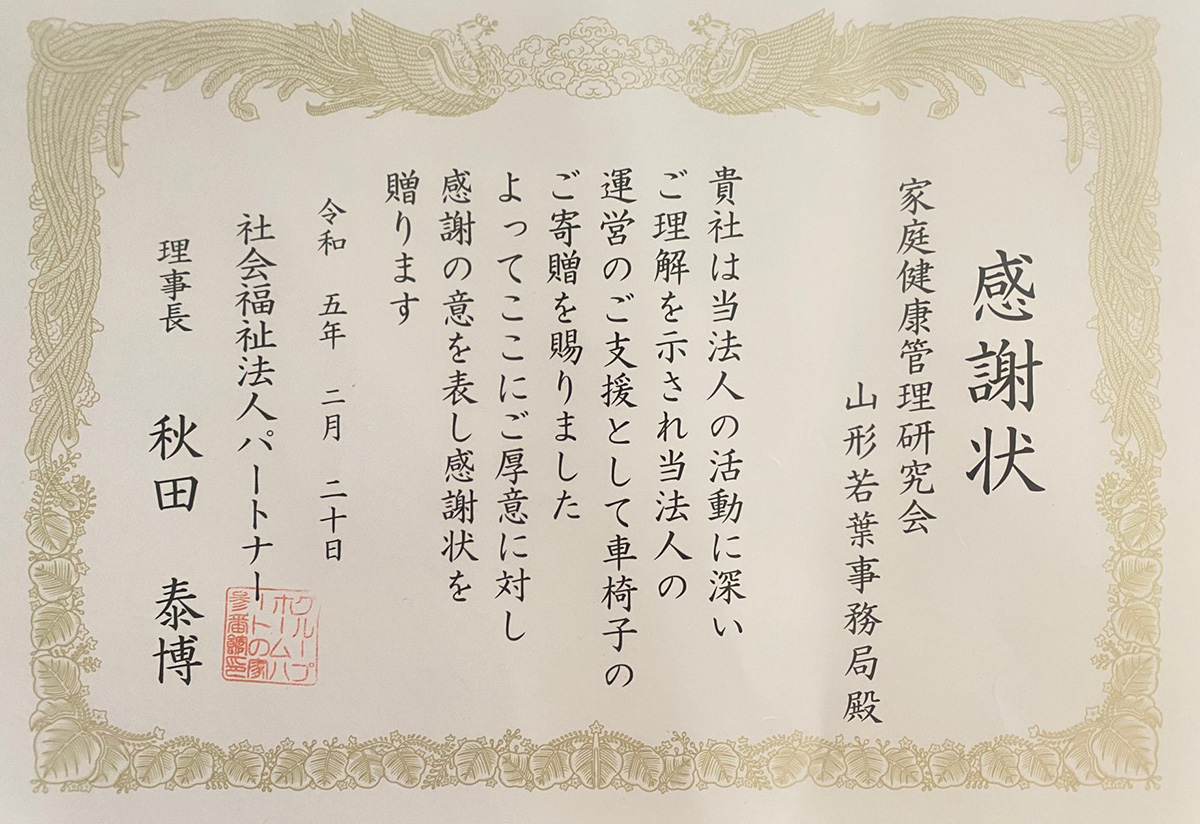 感謝状
家庭健康管理研究会
山形若葉事務局殿
貴社は当法人の活動に深い
ご理解を示され当法人の
運営のご支援として車椅子の
ご寄贈を賜りました
よってここにご厚意に対し
感謝の意を表し感謝状を
贈ります
令和 五年 二月 二十日
社会福祉法人パートナー
理事長 秋田 泰博
グループ
ホームハ
ートの家
参番館印